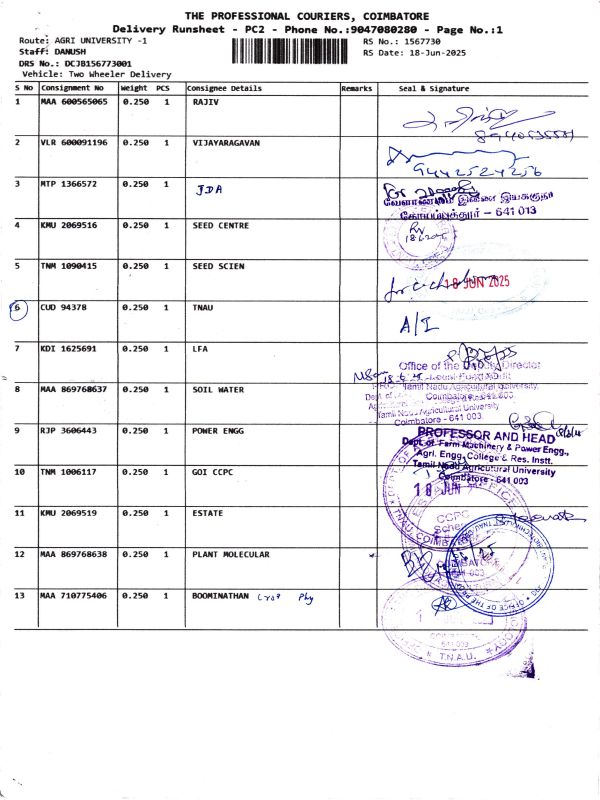 THE PROFESSIONAL COURIERS, COIMBATORE
Delivery Runsheet - PC2 - Phone No.:9047080280 - Page No.:1
Route: AGRI UNIVERSITY -1 RS No.: 1567730
Staff: DANUSH RS Date: 18-Jun-2025
DRS No.: DCJB156773001
Vehicle: Two Wheeler Delivery
S No Consignment No Weight PCS Consignee Details Remarks Seal & Signature
1 MAA 600565065 0.250 1 RAJIV
8940535581
2 VLR 600091196 0.250 1 VIJAYARAGAVAN
9442524256
3 MTP 1366572 0.250 1 JDA
வேளாண்மை இணை இயக்குநர்
கோயம்புத்தூர் - 641 013
4 KMU 2069516 0.250 1 SEED CENTRE
5 TNM 1090415 0.250 1 SEED SCIEN
18 JUN 2025
6 CUD 94378 0.250 1 TNAU
A/I
7 KDI 1625691 0.250 1 LFA
Office of the Deputy Director
Local Fund Audit
Tamil Nadu Agricultural University,
Coimbatore - 641 003
8 MAA 869768637 0.250 1 SOIL WATER
Tamil Nadu Agricultural University
Coimbatore - 641 003
9 RJP 3606443 0.250 1 POWER ENGG
PROFESSOR AND HEAD
Dept. of Farm Machinery & Power Engg.,
Agri. Engg. College & Res. Instt.
Tamil Nadu Agricultural University
Coimbatore - 641 003
10 TNM 1006117 0.250 1 GOI CCPC
18 JUN
CCPC
Scheme
11 KMU 2069519 0.250 1 ESTATE
12 MAA 869768638 0.250 1 PLANT MOLECULAR
COIMBATORE
13 MAA 710775406 0.250 1 BOOMINATHAN Crop Phy
641 003
T.N.A.U.